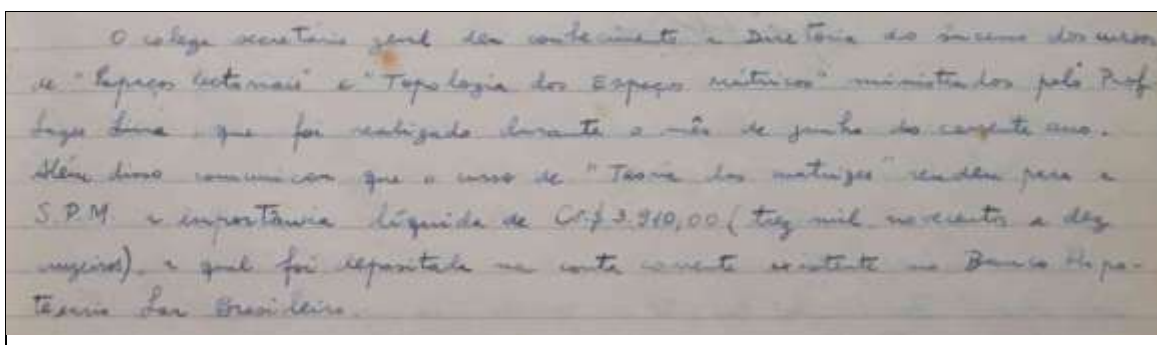 O colega secretário geral deu conhecimento a Diretoria do sucesso dos cursos
de "Espaços Vetoriais" e "Topologia dos Espaços métricos" ministrados pelo Prof.
Lages Lima, que foi realizado durante o mês de junho do corrente ano.
Além disso comunicou que o curso de "Teoria das matrizes" rendeu para a
S.P.M. a importância líquida de Cr$ 3.910,00 (trez mil novecentos e dez
cruzeiros), a qual foi depositada na conta corrente existente no Banco Hipo-
tecario Lar Brasileiro.